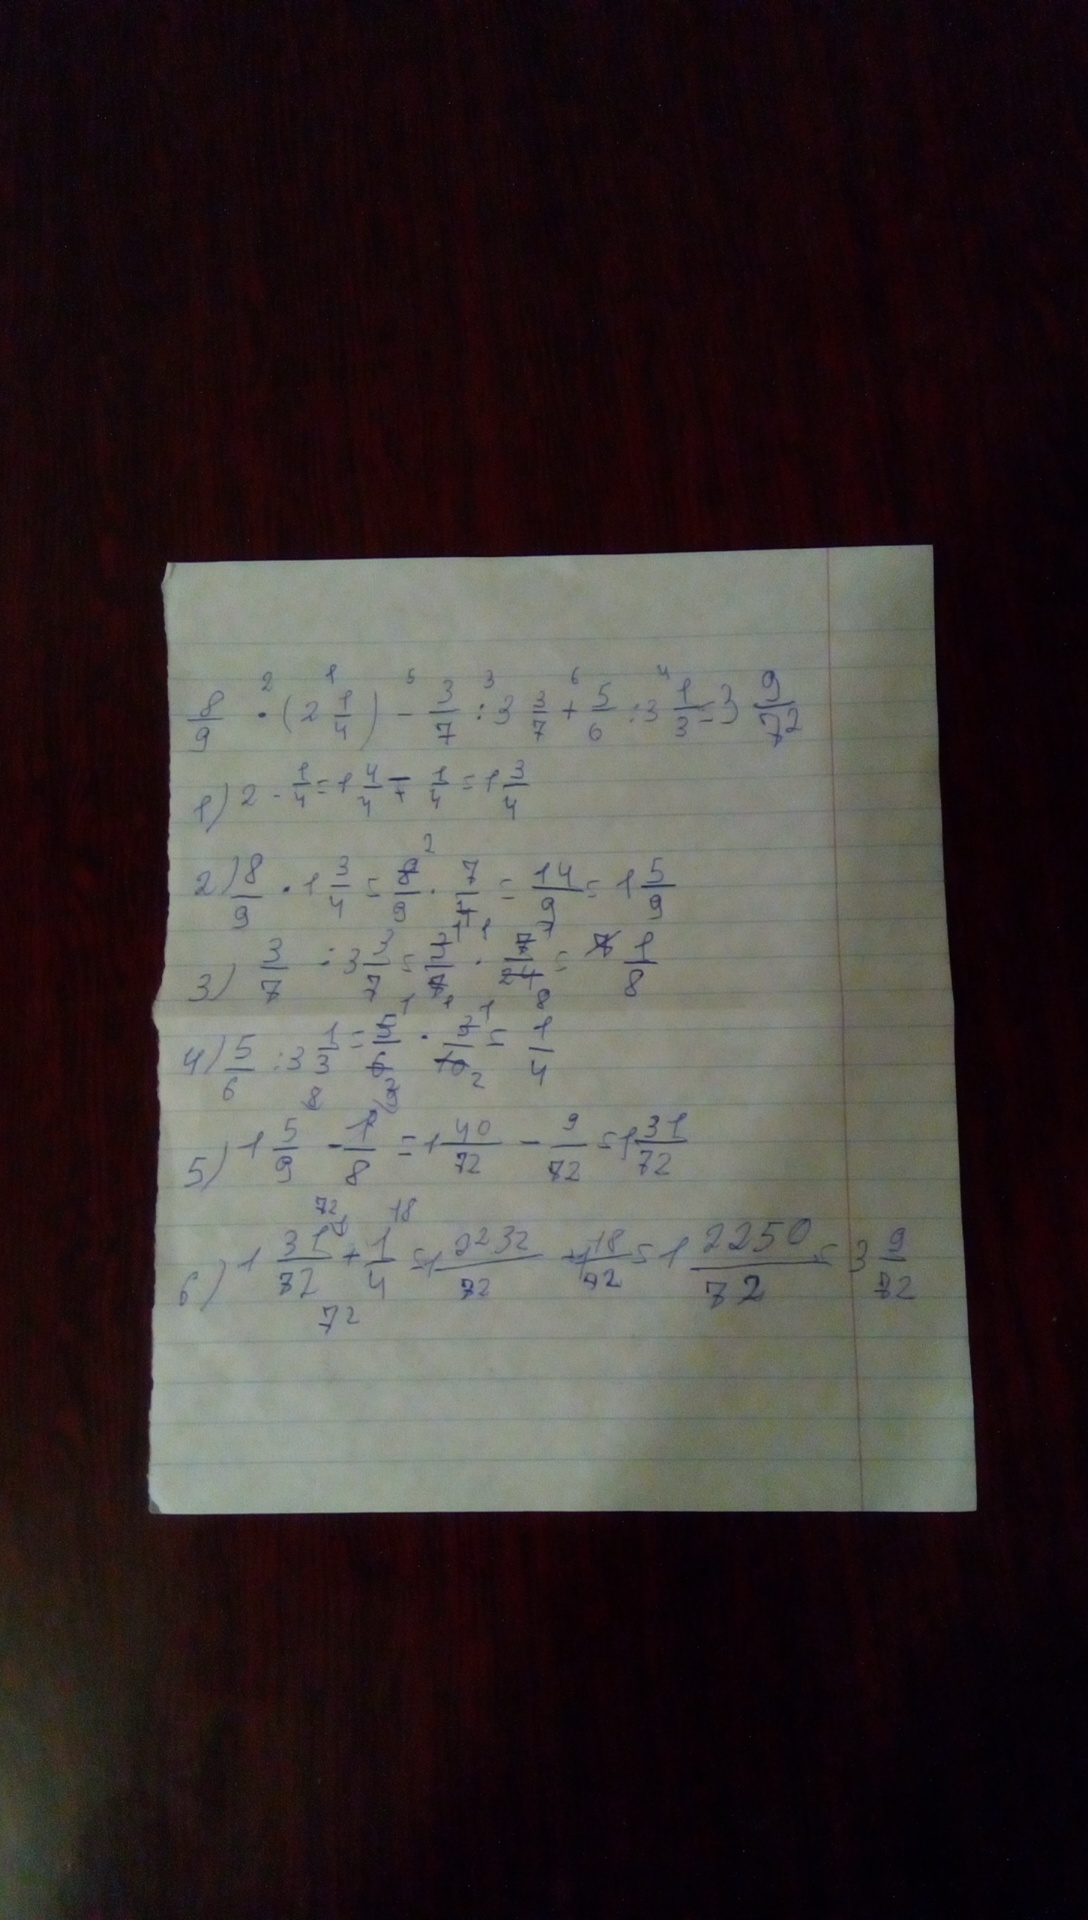 8/9 ·² (2 ¹ 1/4) -⁵ 3/7 :³ 3 3/7 +⁶ 5/6 :⁴ 3 1/3 = 3 9/72
1) 2 - 1/4 = 1 4/4 - 1/4 = 1 3/4
2) 8/9 · 1 3/4 = 8/9 · 7/4 = 14/9 = 1 5/9
3) 3/7 : 3 3/7 = 3/7 · 7/24 = 1/8
4) 5/6 : 3 1/3 = 5/6 · 3/10 = 1/4
5) 1 5/9 - 1/8 = 1 40/72 - 9/72 = 1 31/72
6) 1 31/72 + 1/4 = 1 2232/72 + 18/72 = 1 2250/72 = 3 9/72
72